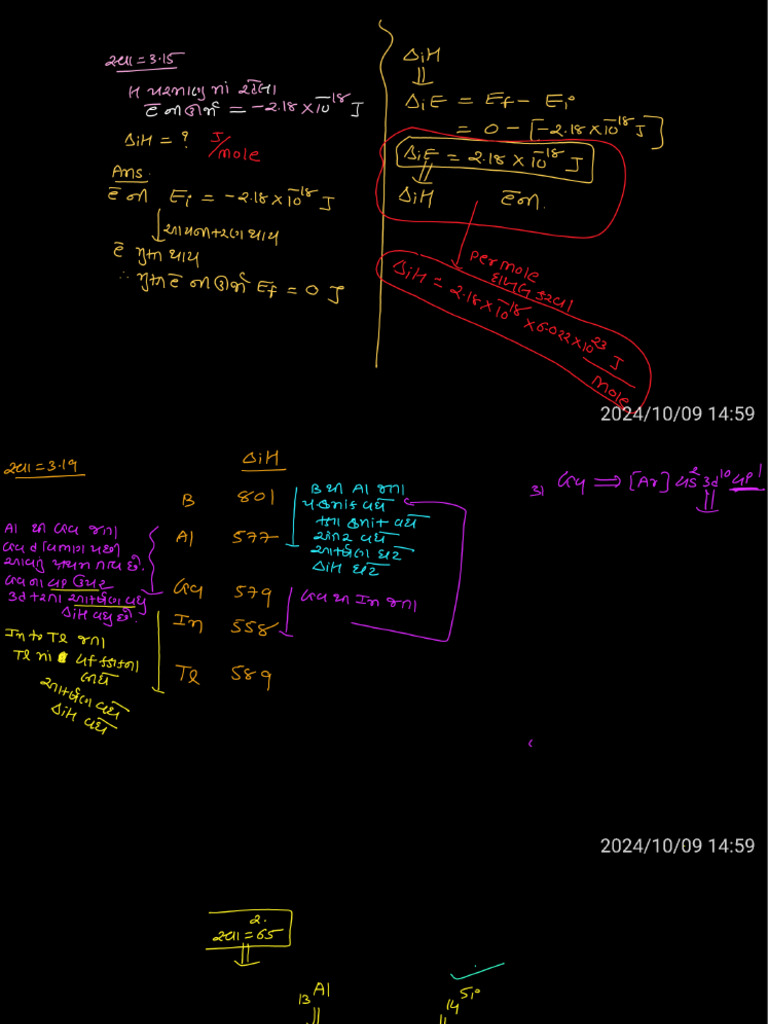 સવા = 3.15
H પરમાણુ માં રહેલા
ē ની ઊર્જા = -2.18 × 10⁻¹⁸ J
ΔiH = ? J/mole
Ans.
ē ની Ei = -2.18 × 10⁻¹⁸ J
આયનીકરણ થાય
ē મુક્ત થાય
∴ મુક્ત ē ની ઊર્જા Ef = 0 J
ΔiH
⇓
ΔiE = Ef - Ei
= 0 - [-2.18 × 10⁻¹⁸ J]
ΔiE = 2.18 × 10⁻¹⁸ J
ΔiH
per mole
ΔiH = 2.18 × 10⁻¹⁸ × 6.022 × 10²³ J/mole
2024/10/09 14:59
સવા = 3.19
ΔiH
B 801
Al 577
Ga 579
In 558
Tl 589
B થી Al જતા
કદ વધે
અંતર વધે
આકર્ષણ ઘટે
ΔiH ઘટે
Ga થી In જતા
Al થી Ga જતા
3d
આકર્ષણ વધુ
ΔiH વધુ છે.
In to Tl જતા
Tl માં 4f
આકર્ષણ વધે
ΔiH વધે
31 Ga ⟹ [Ar] 4s² 3d¹⁰ 4p¹
2024/10/09 14:59
2.
સવા = 65
⇓
13 Al
14 Si